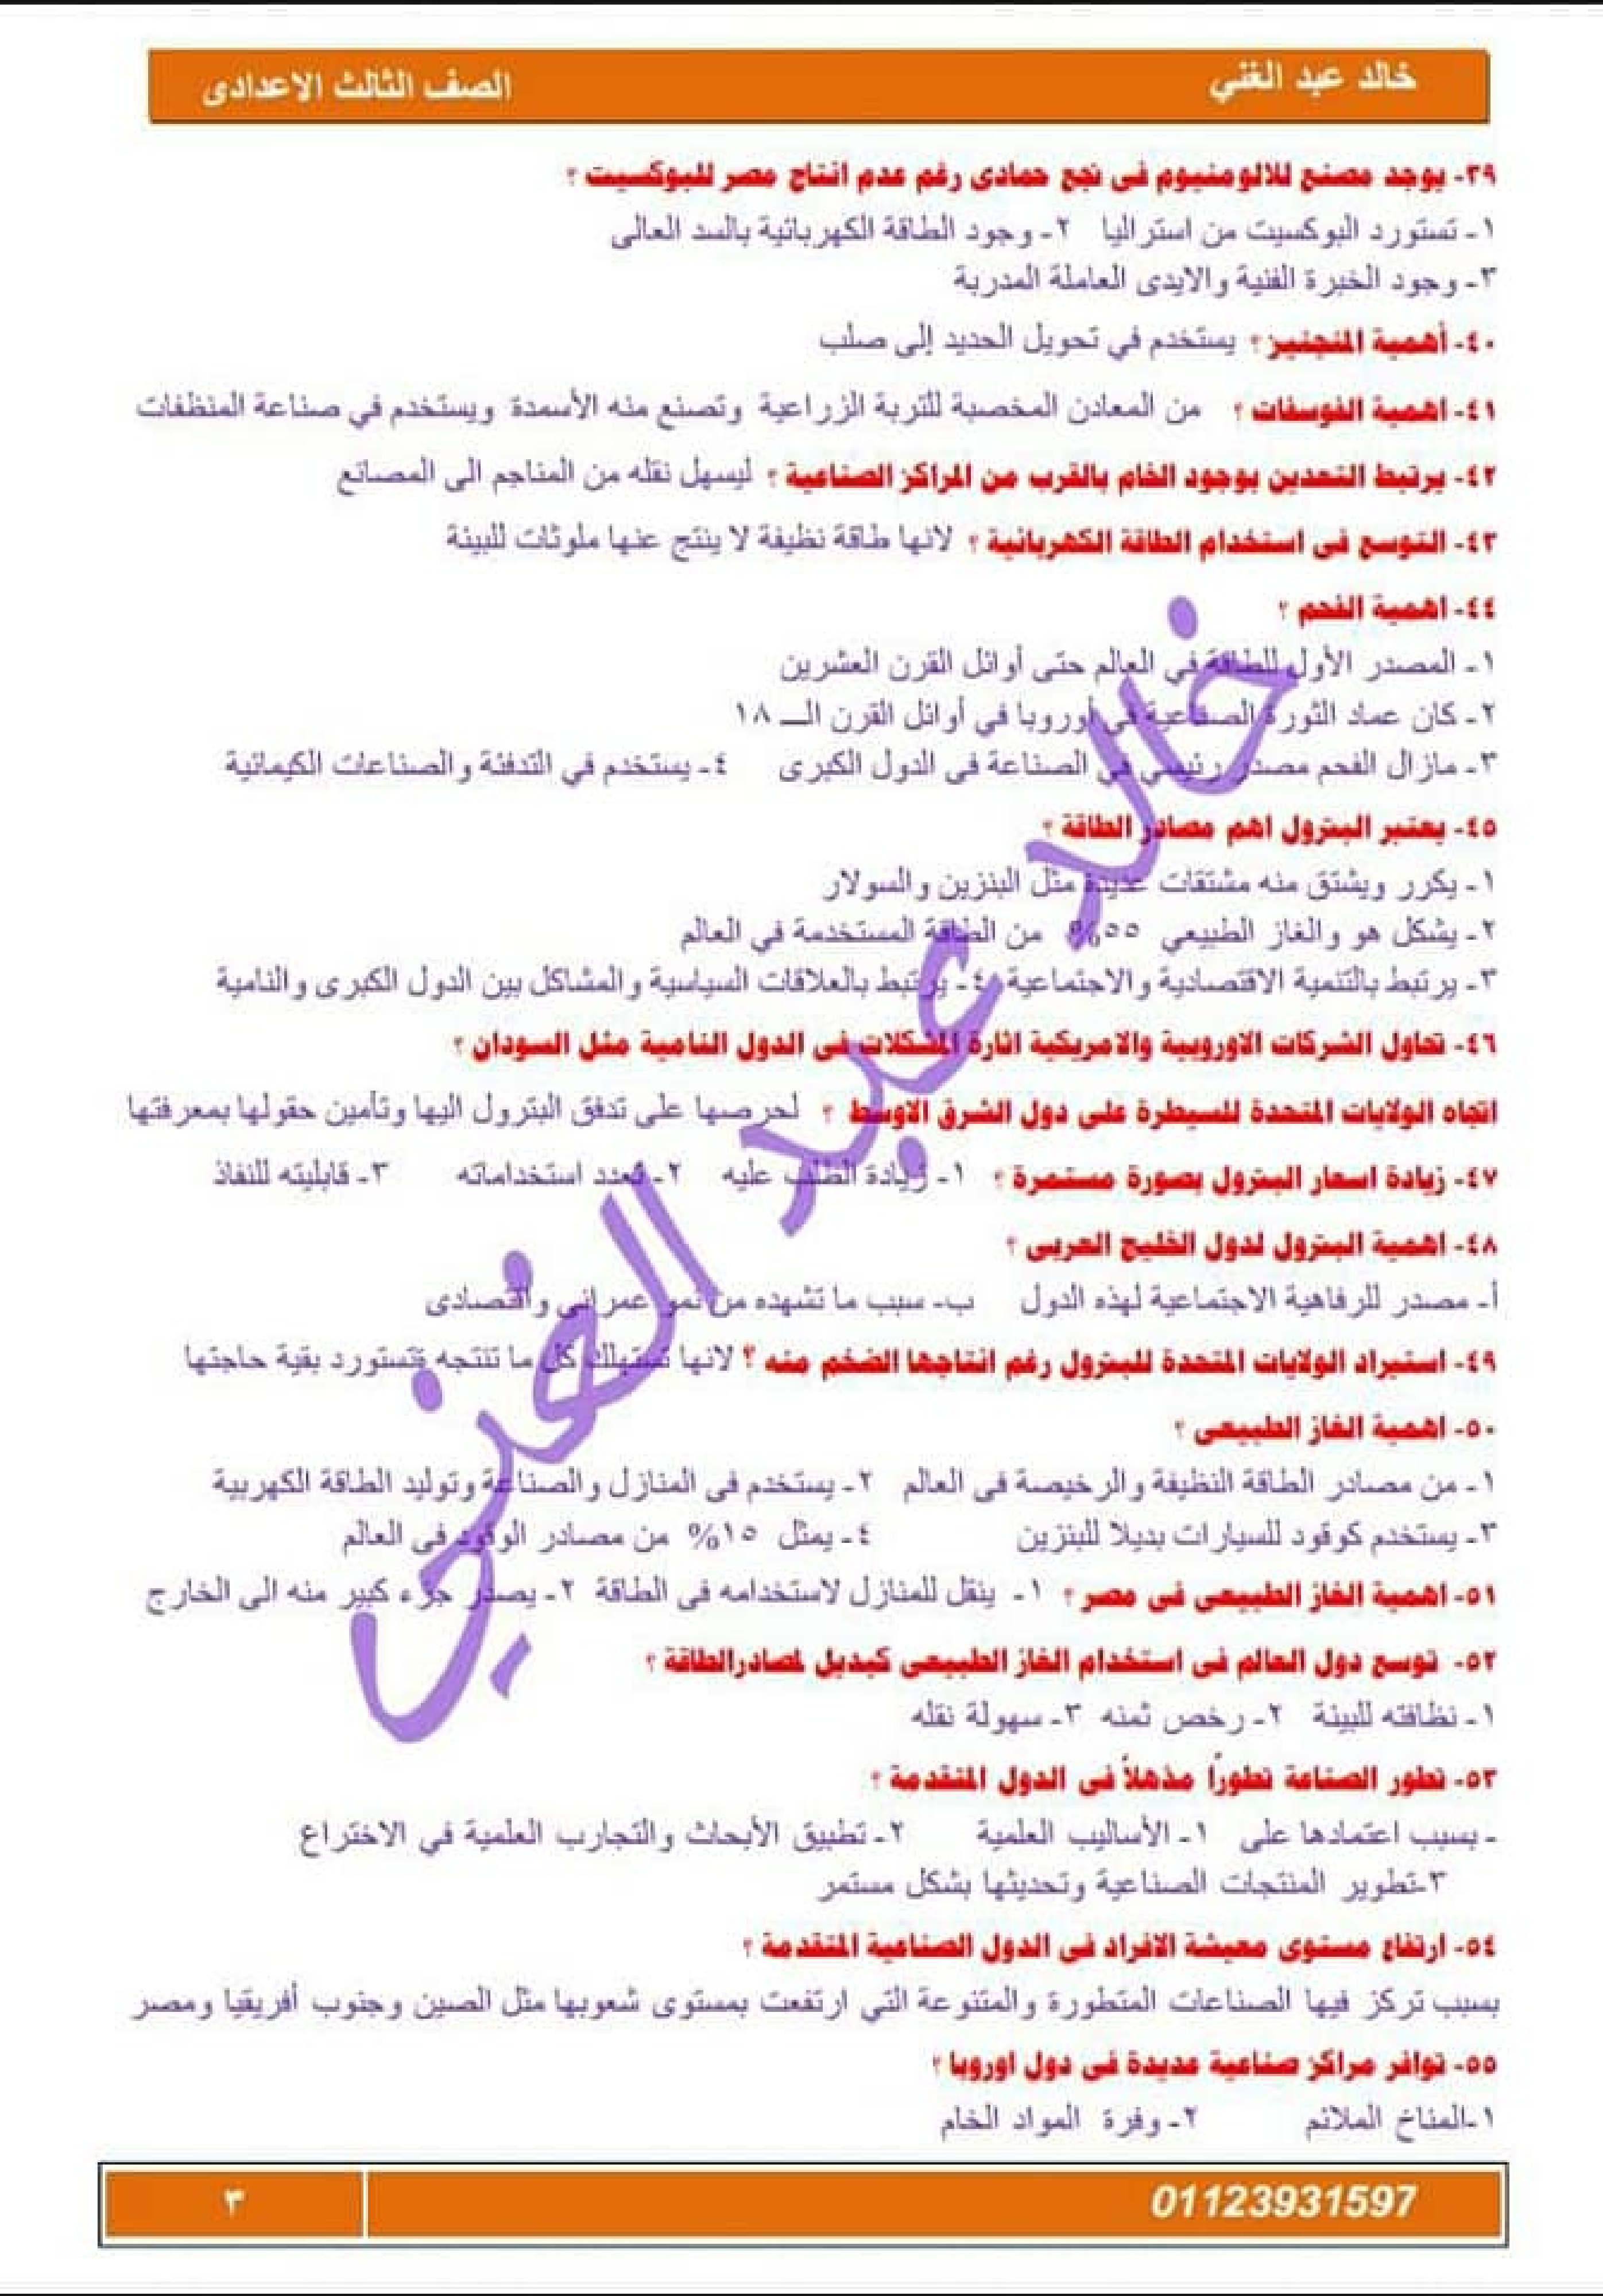 خالد عبد الغني
الصف الثالث الاعدادى
٣٩- يوجد مصنع للالومنيوم فى نجع حمادى رغم عدم انتاج مصر للبوكسيت ؟
١- تستورد البوكسيت من استراليا ٢- وجود الطاقة الكهربائية بالسد العالى
٣- وجود الخبرة الفنية والايدى العاملة المدربة
٤٠- أهمية المنجنيز ؟ يستخدم في تحويل الحديد إلى صلب
٤١- اهمية الفوسفات ؟ من المعادن المخصبة للتربة الزراعية وتصنع منه الأسمدة ويستخدم في صناعة المنظفات
٤٢- يرتبط التعدين بوجود الخام بالقرب من المراكز الصناعية ؟ ليسهل نقله من المناجم الى المصانع
٤٣- التوسع فى استخدام الطاقة الكهربائية ؟ لانها طاقة نظيفة لا ينتج عنها ملوثات للبيئة
٤٤- اهمية الفحم ؟
١- المصدر الأول للطاقة في العالم حتى أوائل القرن العشرين
٢- كان عماد الثورة الصناعية في أوروبا في أوائل القرن الـ ١٨
٣- مازال الفحم مصدر رئيسي في الصناعة فى الدول الكبرى ٤- يستخدم في التدفئة والصناعات الكيمائية
٤٥- يعتبر البترول اهم مصادر الطاقة ؟
١- يكرر ويشتق منه مشتقات عديدة مثل البنزين والسولار
٢- يشكل هو والغاز الطبيعي ٥٥% من الطاقة المستخدمة في العالم
٣- يرتبط بالتنمية الاقتصادية والاجتماعية ٤- يرتبط بالعلاقات السياسية والمشاكل بين الدول الكبرى والنامية
٤٦- تحاول الشركات الاوروبية والامريكية اثارة المشكلات فى الدول النامية مثل السودان ؟
اتجاه الولايات المتحدة للسيطرة على دول الشرق الاوسط ؟ لحرصها على تدفق البترول اليها وتأمين حقولها بمعرفتها
٤٧- زيادة اسعار البترول بصورة مستمرة ؟ ١- زيادة الطلب عليه ٢- تعدد استخداماته ٣- قابليته للنفاذ
٤٨- اهمية البترول لدول الخليج العربى ؟
أ- مصدر للرفاهية الاجتماعية لهذه الدول ب- سبب ما تشهده من نمو عمرانى واقتصادى
٤٩- استيراد الولايات المتحدة للبترول رغم انتاجها الضخم منه ؟ لانها تستهلك كل ما تنتجه وتستورد بقية حاجتها
٥٠- اهمية الغاز الطبيعى ؟
١- من مصادر الطاقة النظيفة والرخيصة فى العالم ٢- يستخدم فى المنازل والصناعة وتوليد الطاقة الكهربية
٣- يستخدم كوقود للسيارات بديلا للبنزين ٤- يمثل ١٥% من مصادر الوقود فى العالم
٥١- اهمية الغاز الطبيعى فى مصر ؟ ١- ينقل للمنازل لاستخدامه فى الطاقة ٢- يصدر جزء كبير منه الى الخارج
٥٢- توسع دول العالم فى استخدام الغاز الطبيعى كبديل لمصادرالطاقة ؟
١- نظافته للبيئة ٢- رخص ثمنه ٣- سهولة نقله
٥٣- تطور الصناعة تطوراً مذهلاً فى الدول المتقدمة ؟
- بسبب اعتمادها على ١- الأساليب العلمية ٢- تطبيق الأبحاث والتجارب العلمية في الاختراع
٣-تطوير المنتجات الصناعية وتحديثها بشكل مستمر
٥٤- ارتفاع مستوى معيشة الافراد فى الدول الصناعية المتقدمة ؟
بسبب تركز فيها الصناعات المتطورة والمتنوعة التي ارتفعت بمستوى شعوبها مثل الصين وجنوب أفريقيا ومصر
٥٥- توافر مراكز صناعية عديدة فى دول اوروبا ؟
١-المناخ الملائم ٢- وفرة المواد الخام
خالد عبد الغني
01123931597
٣